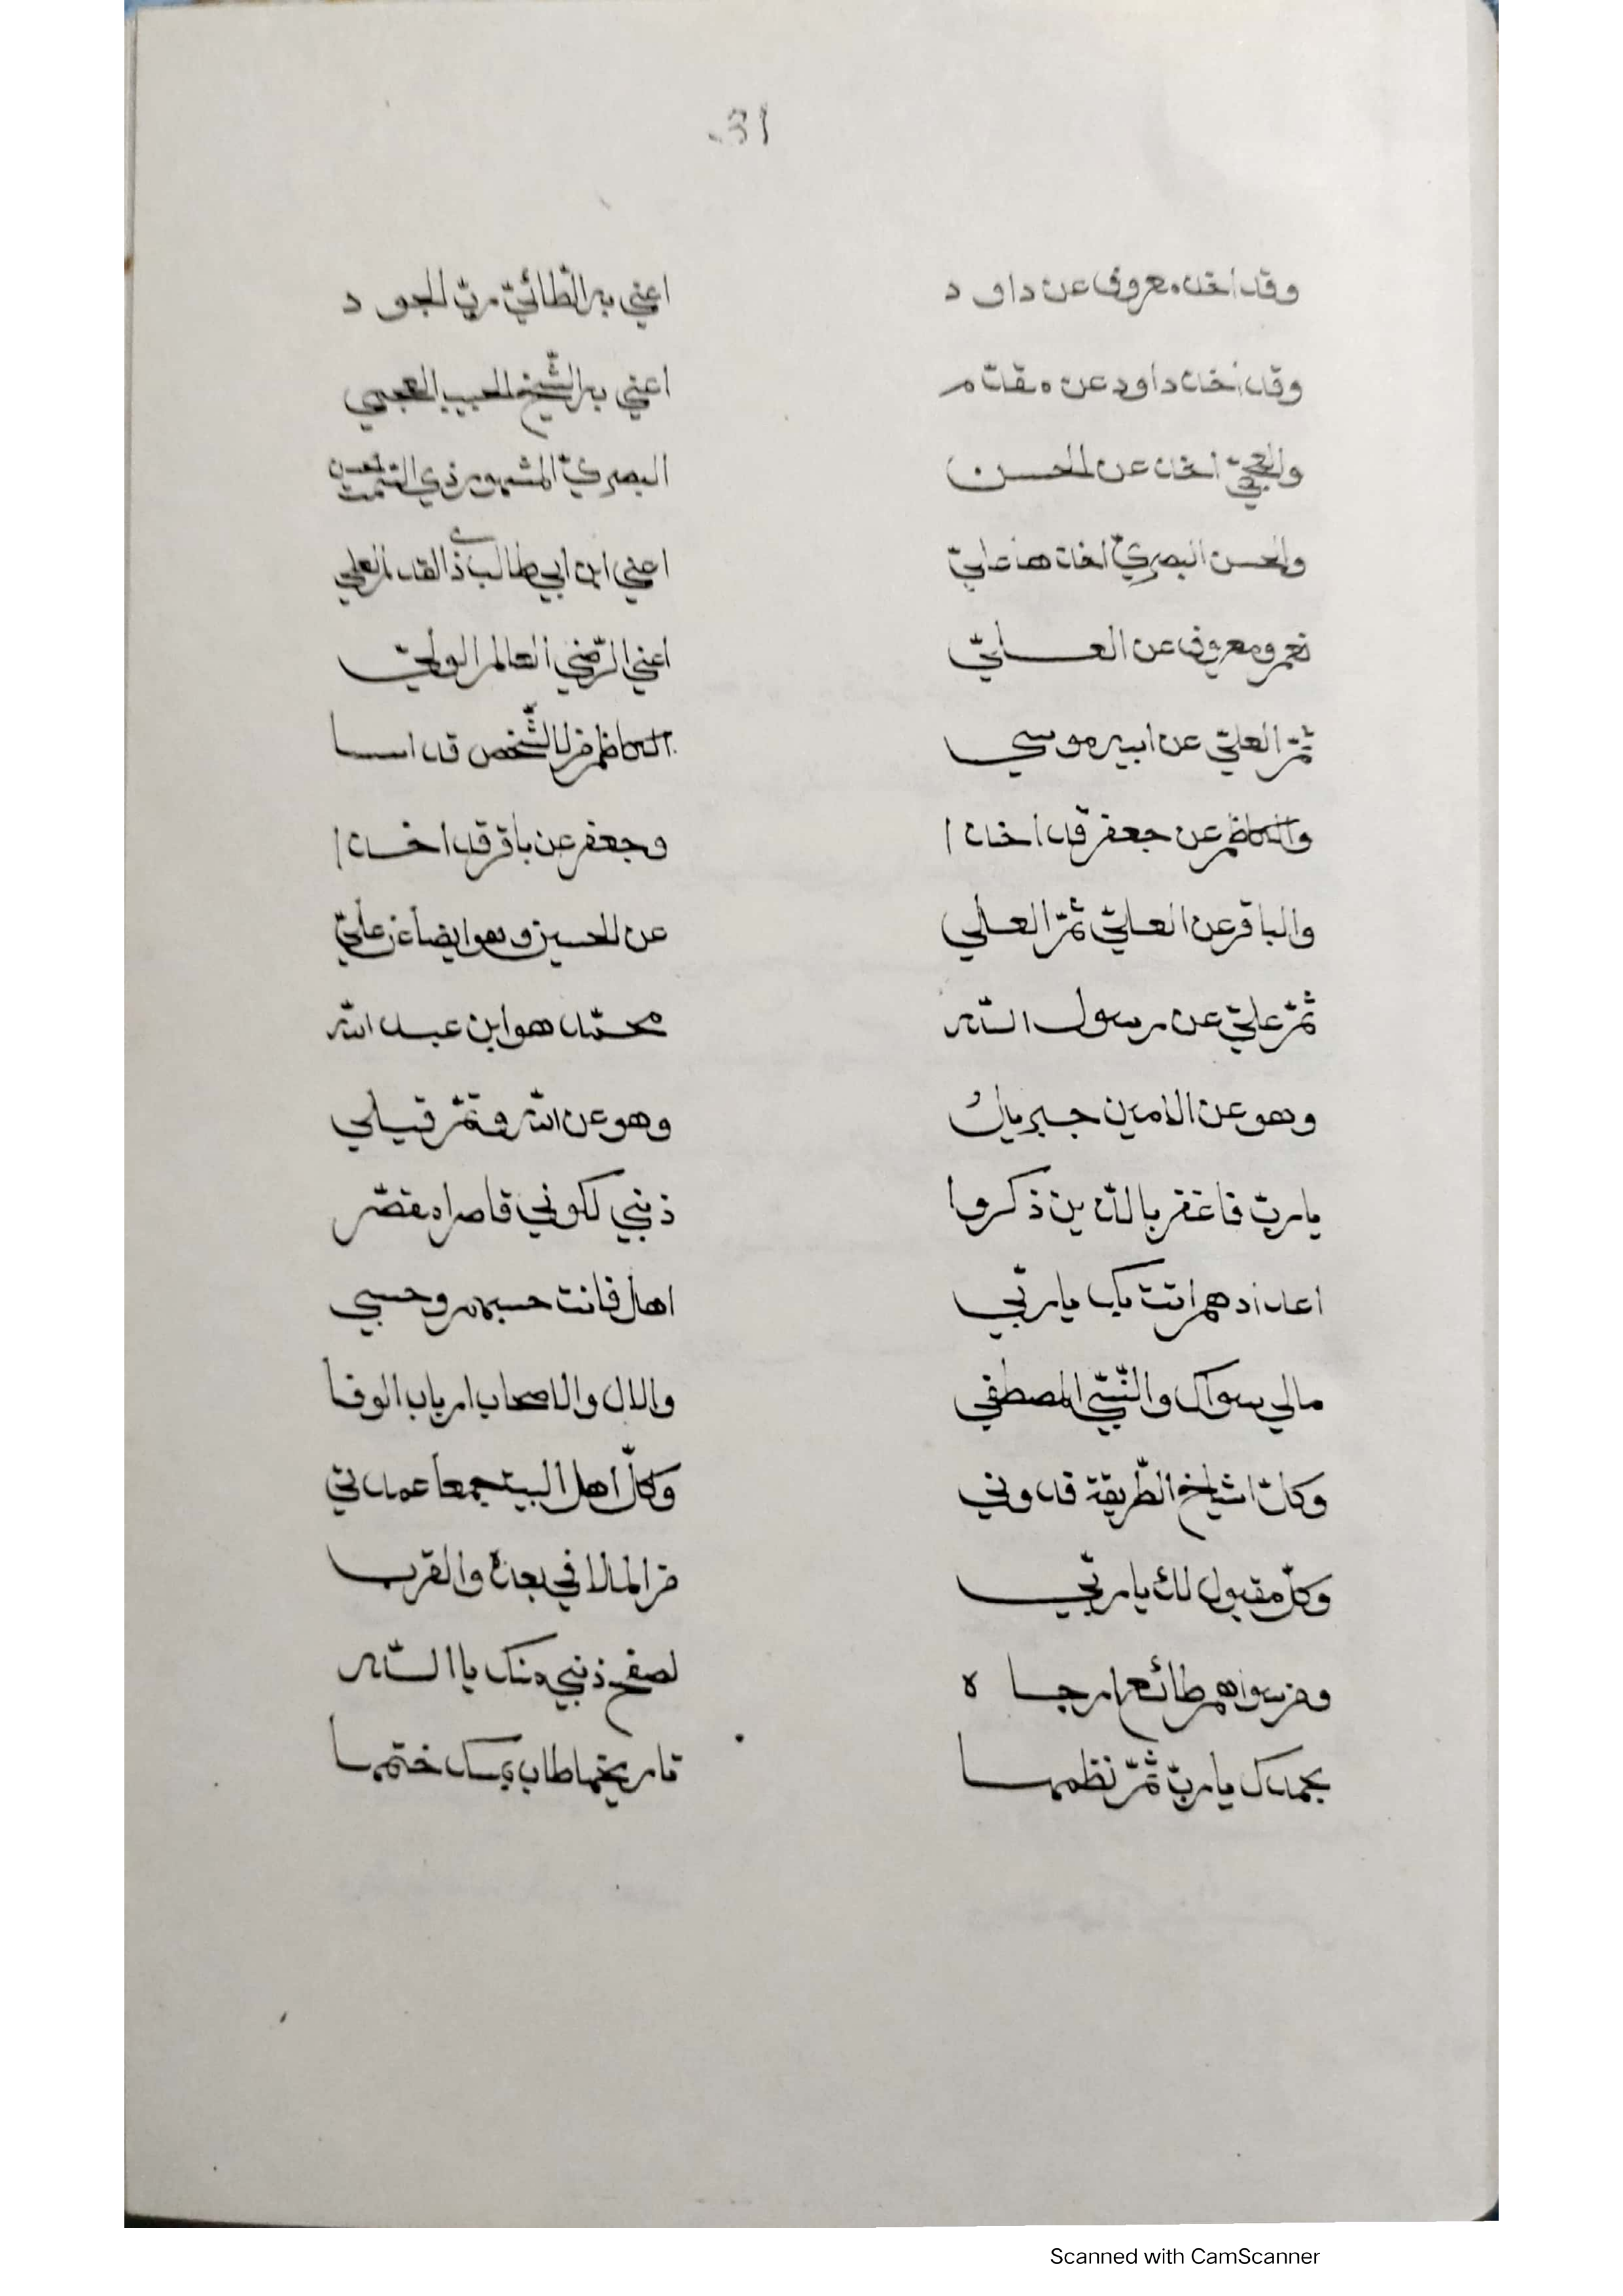 31
وقد أخذ معروف عن داود اعني به الطّائيّ ربّ الجود
وقد أخذ داود عن مقدّم اعني به الشّيخ الحبيب العجمي
والعجميّ اخذ عن الحسن البصريّ المشهور ذي التسمت
والحسن البصريّ اخذ هذا عليّ اعني ابن ابي طالب ذي القدر العلي
نعم ومعروف عن العليّ اعني الرّضي العالم الوليّ
ثمّ العليّ عن ابيه موسي الكاظم من للشّخص قد اسا
والكاظم عن جعفر قد اخذا وجعفر عن باقر قد اخذا
والباقر عن العليّ ثمّ العلي عن الحسين وهو ايضا عن عليّ
ثمّ عليّ عن رسول اللّه محمّد هو ابن عبد اللّه
وهو عن الامين جبريل وهو عن اللّه وتمّ قيلي
يا ربّ فاغفر بالّذين ذكروا ذنبي لكوني قاصرا مقصّر
اعداد هم انت بك يا ربّي اهل فانت حسبهم وحسبي
مالي سواك والنّبيّ المصطفي والال والاصحاب ارباب الوفا
وكلّ اشياخ الطّريقة قدوتي وكلّ اهل البيت جمعا عمدتي
وكلّ مقبول لك يا ربّي من الملا في بعد والقرب
ومن سواهم طائع ارجاه لصفح ذنبي منك يا اللّه
بحمدك يا ربّ ثمّ نظمها تاريخها طاب بمسك ختمها
Scanned with CamScanner